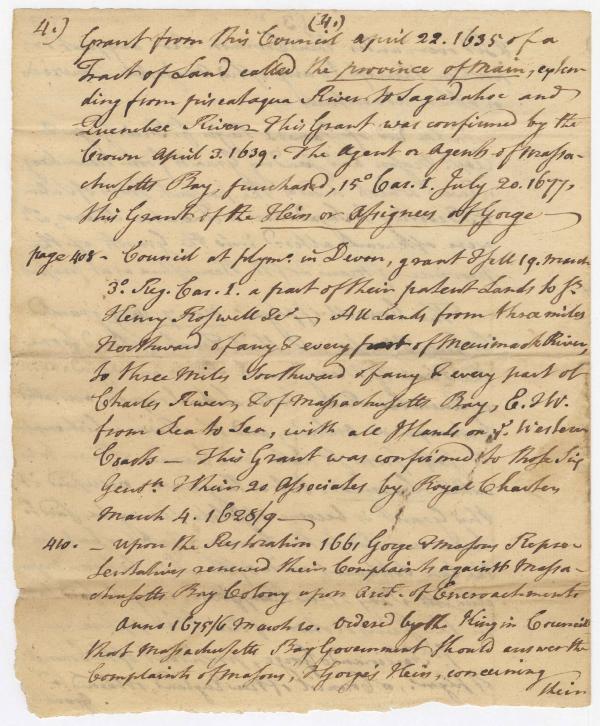 4.)
(4.)
Grant from this Council april 22. 1635 of a
Tract of Land called the province of Main, exten-
ding from piscataqua River to Sagadahoc and
Quenebec River – This Grant was confirmed by the
Crown April 3. 1639. The Agent or Agents of Massa-
chusetts Bay, purchased, 15° Car. I. July 20. 1677,
this Grant of the Heirs or assignees of Gorge –
page 408 – Council at plymo. in Devon, grant & sell 19. march
3° Reg. Car. I. a part of their patent Lands to Sr.
Henry Roswell &c – All Lands from three miles
Northward of any & every part of Merrimack River,
to three Miles Southward of any & every part of
Charles River, & of Massachusetts Bay, E. & W.
from Sea to Sea, with all Islands on ye. Western
Coasts – This Grant was confirmed to those Six
Gentn. & their 20 Associates by Royal Charter
March 4. 1628/9 –
410. – upon the Restoration 1661 Gorge & Masons Repre-
sentatives renewed their Complaints against Massa-
chusetts Bay Colony upon acct. of Encroachments
Anno 1675/6 March 10. ordered by the King in Council
that Massachusetts Bay Government should answer the
Complaints of Masons, & Gorge's Heirs, concerning
their